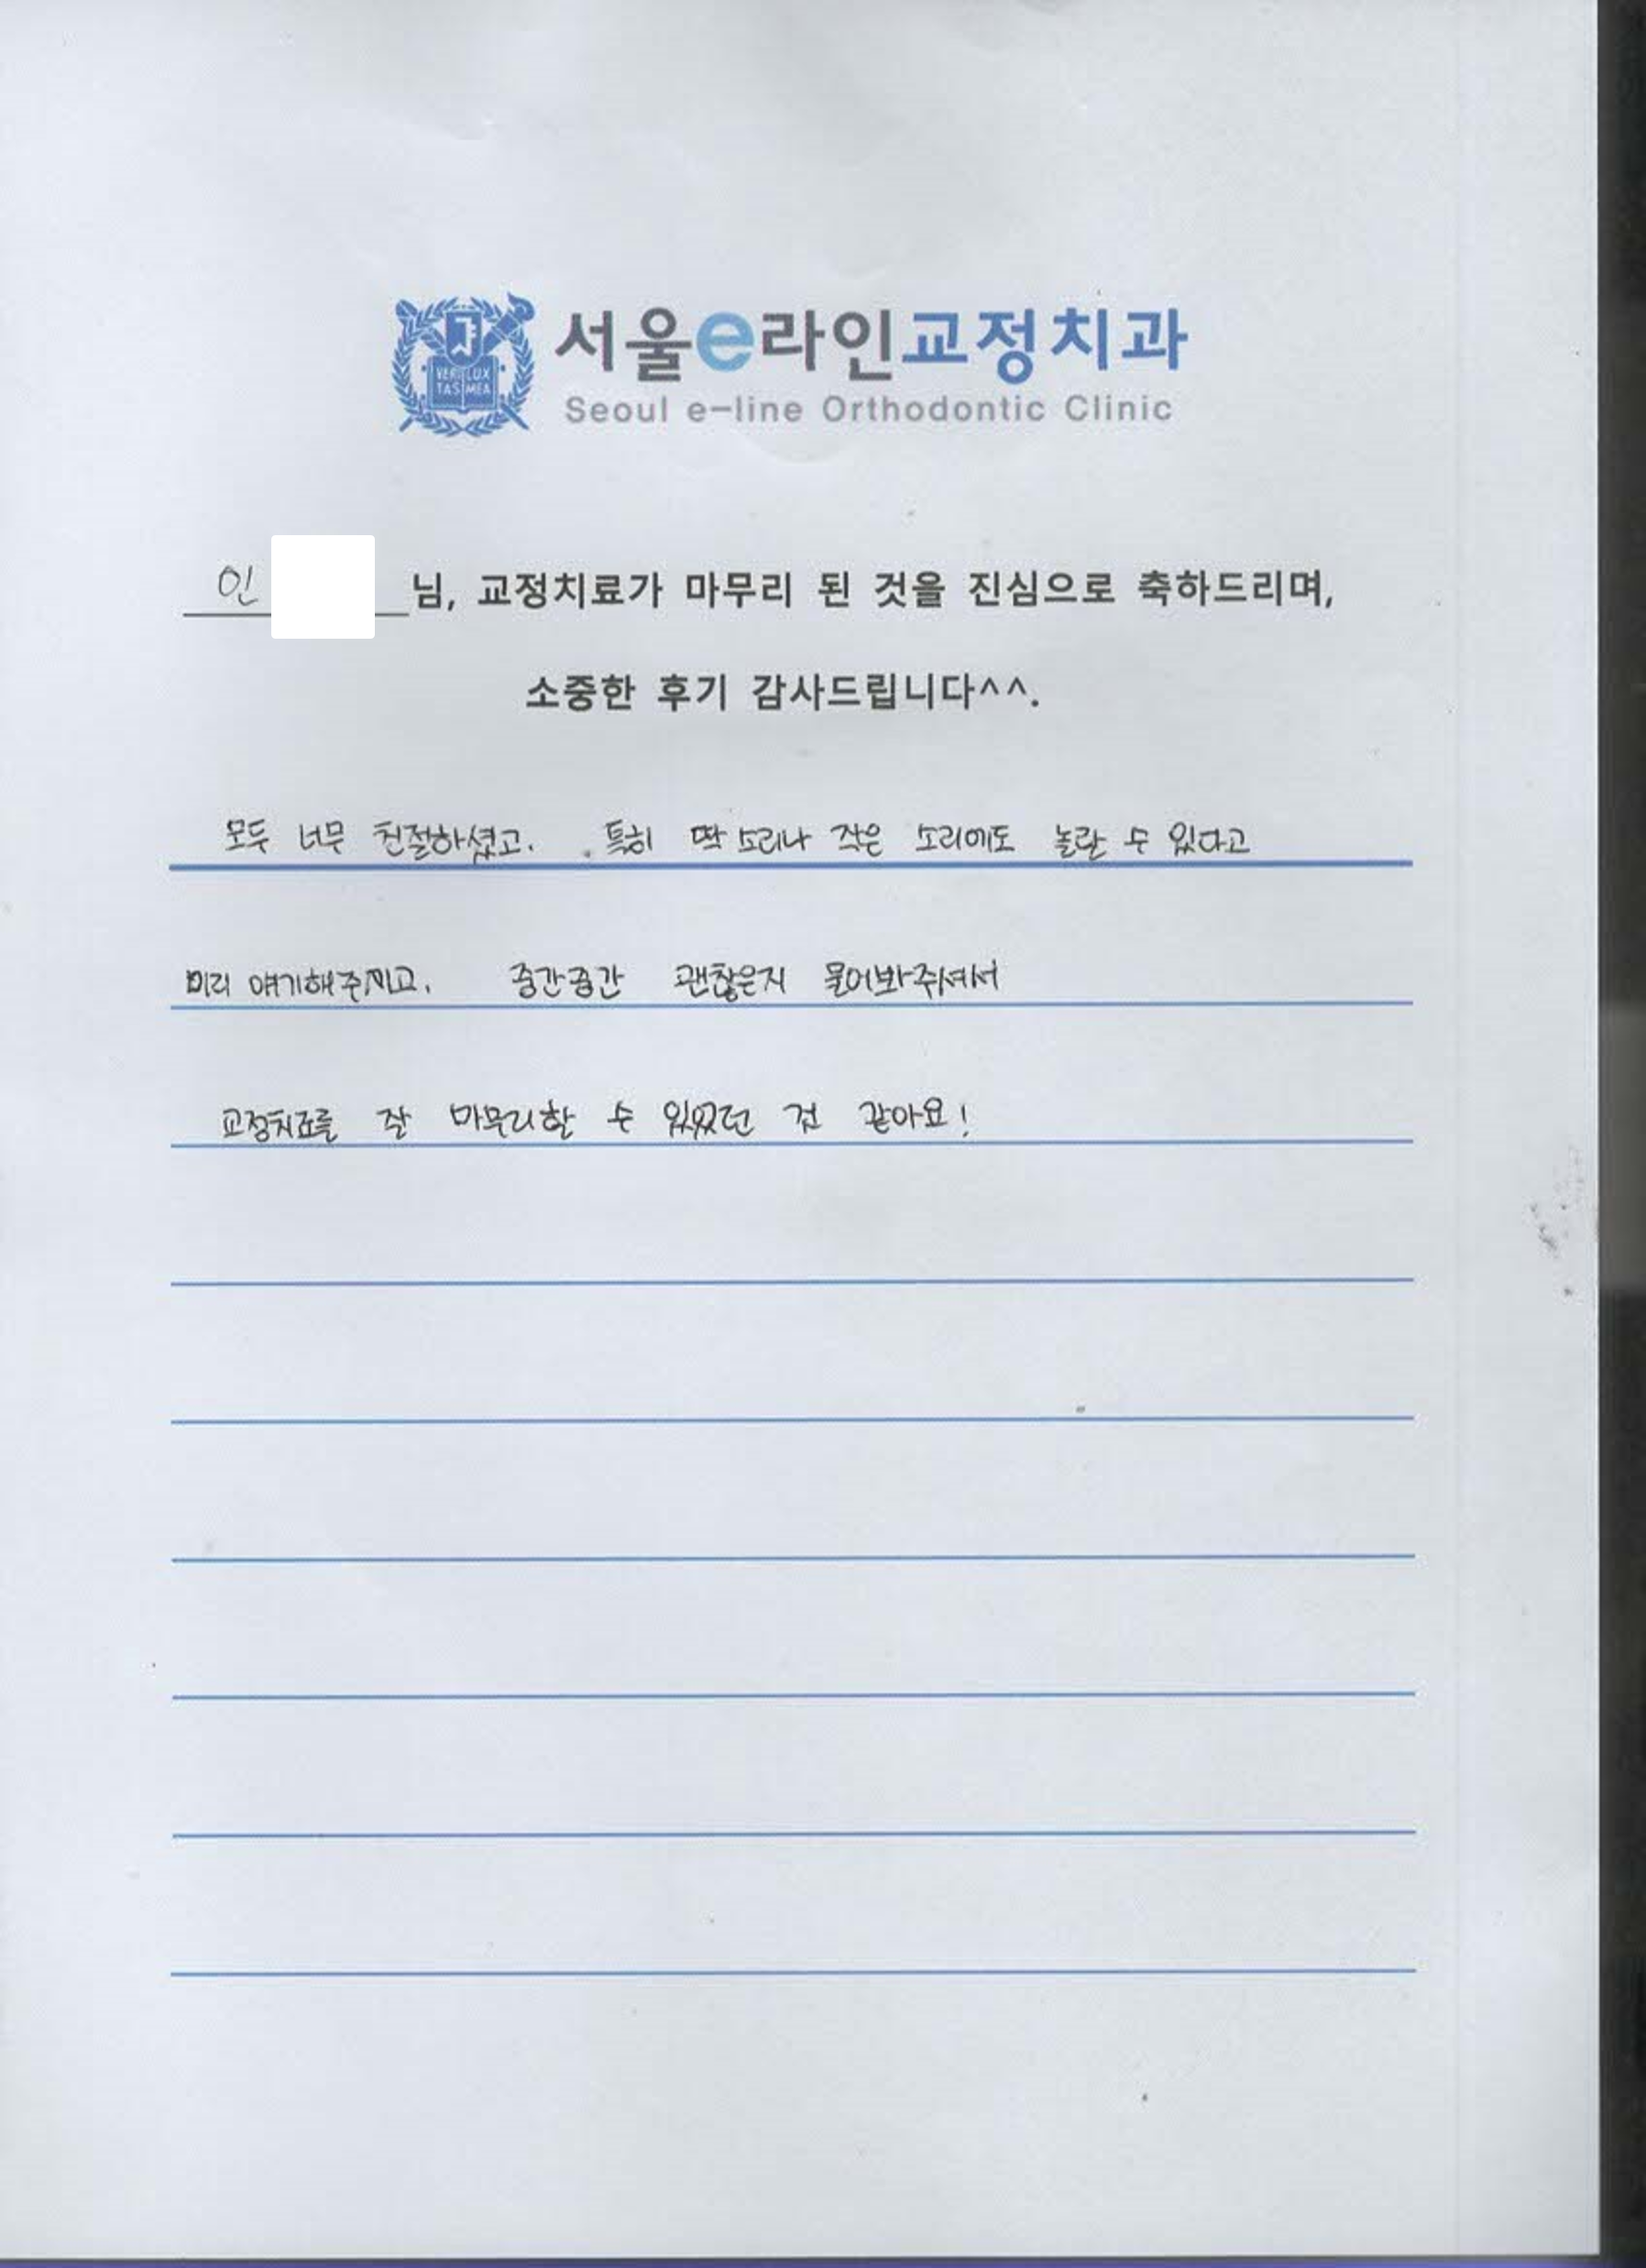 VERI LUX
TAS MEA
서울e라인교정치과
Seoul e-line Orthodontic Clinic
인 님, 교정치료가 마무리 된 것을 진심으로 축하드리며,
소중한 후기 감사드립니다^^.
모두 너무 친절하셨고. 특히 딱 소리나 작은 소리에도 놀랄 수 있다고
미리 얘기해주시고, 중간중간 괜찮은지 물어봐주셔서
교정치료를 잘 마무리할 수 있었던 것 같아요!